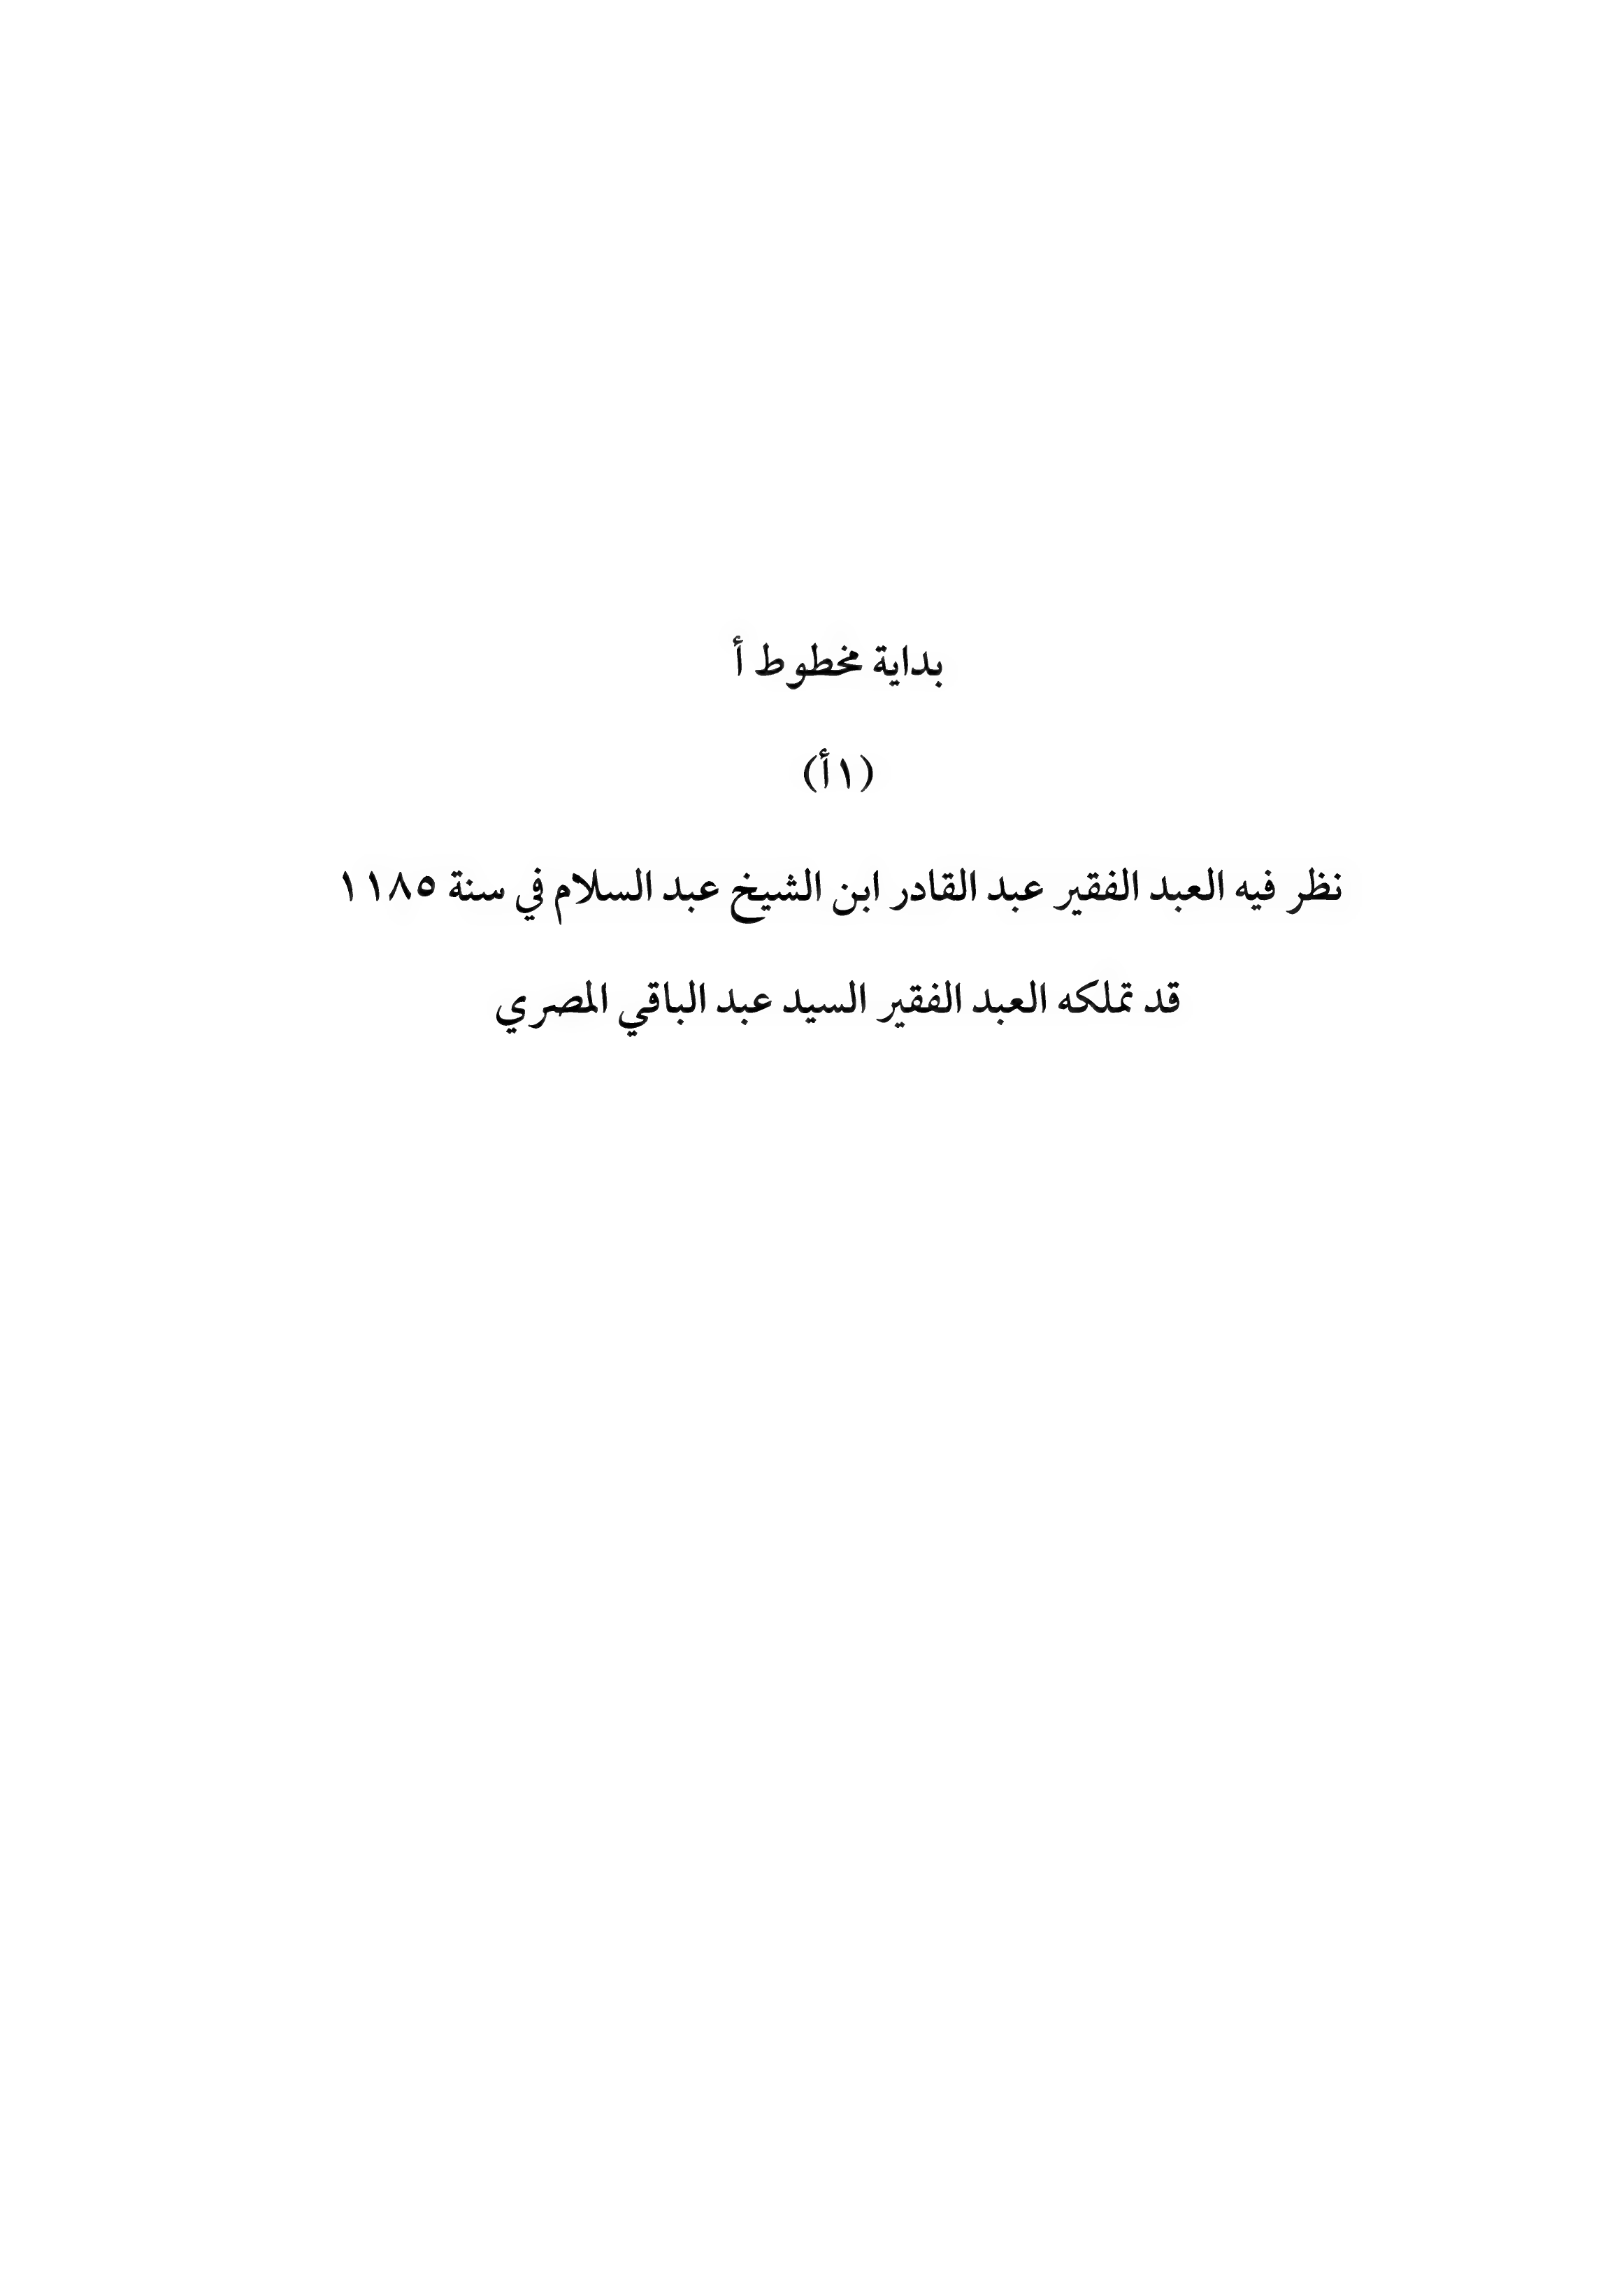 بداية مخطوط أ
(١أ)
نظر فيه العبد الفقير عبد القادر ابن الشيخ عبد السلام في سنة ١١٨٥
قد تملكه العبد الفقير السيد عبد الباقي المصري